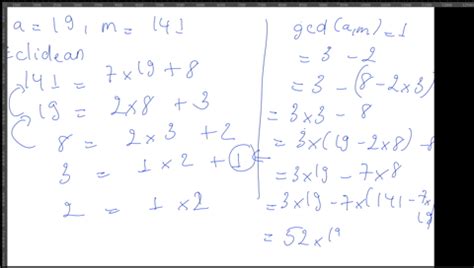 a = 19, m = 141
Eclidean
141 = 7x19 + 8
19 = 2x8 + 3
8 = 2x3 + 2
3 = 1x2 + 1
2 = 1x2
gcd(a,m) = 1
= 3 - 2
= 3 - (8 - 2x3)
= 3x3 - 8
= 3x(19 - 2x8) - 8
= 3x19 - 7x8
= 3x19 - 7x(141 - 7x
19)
= 52x19